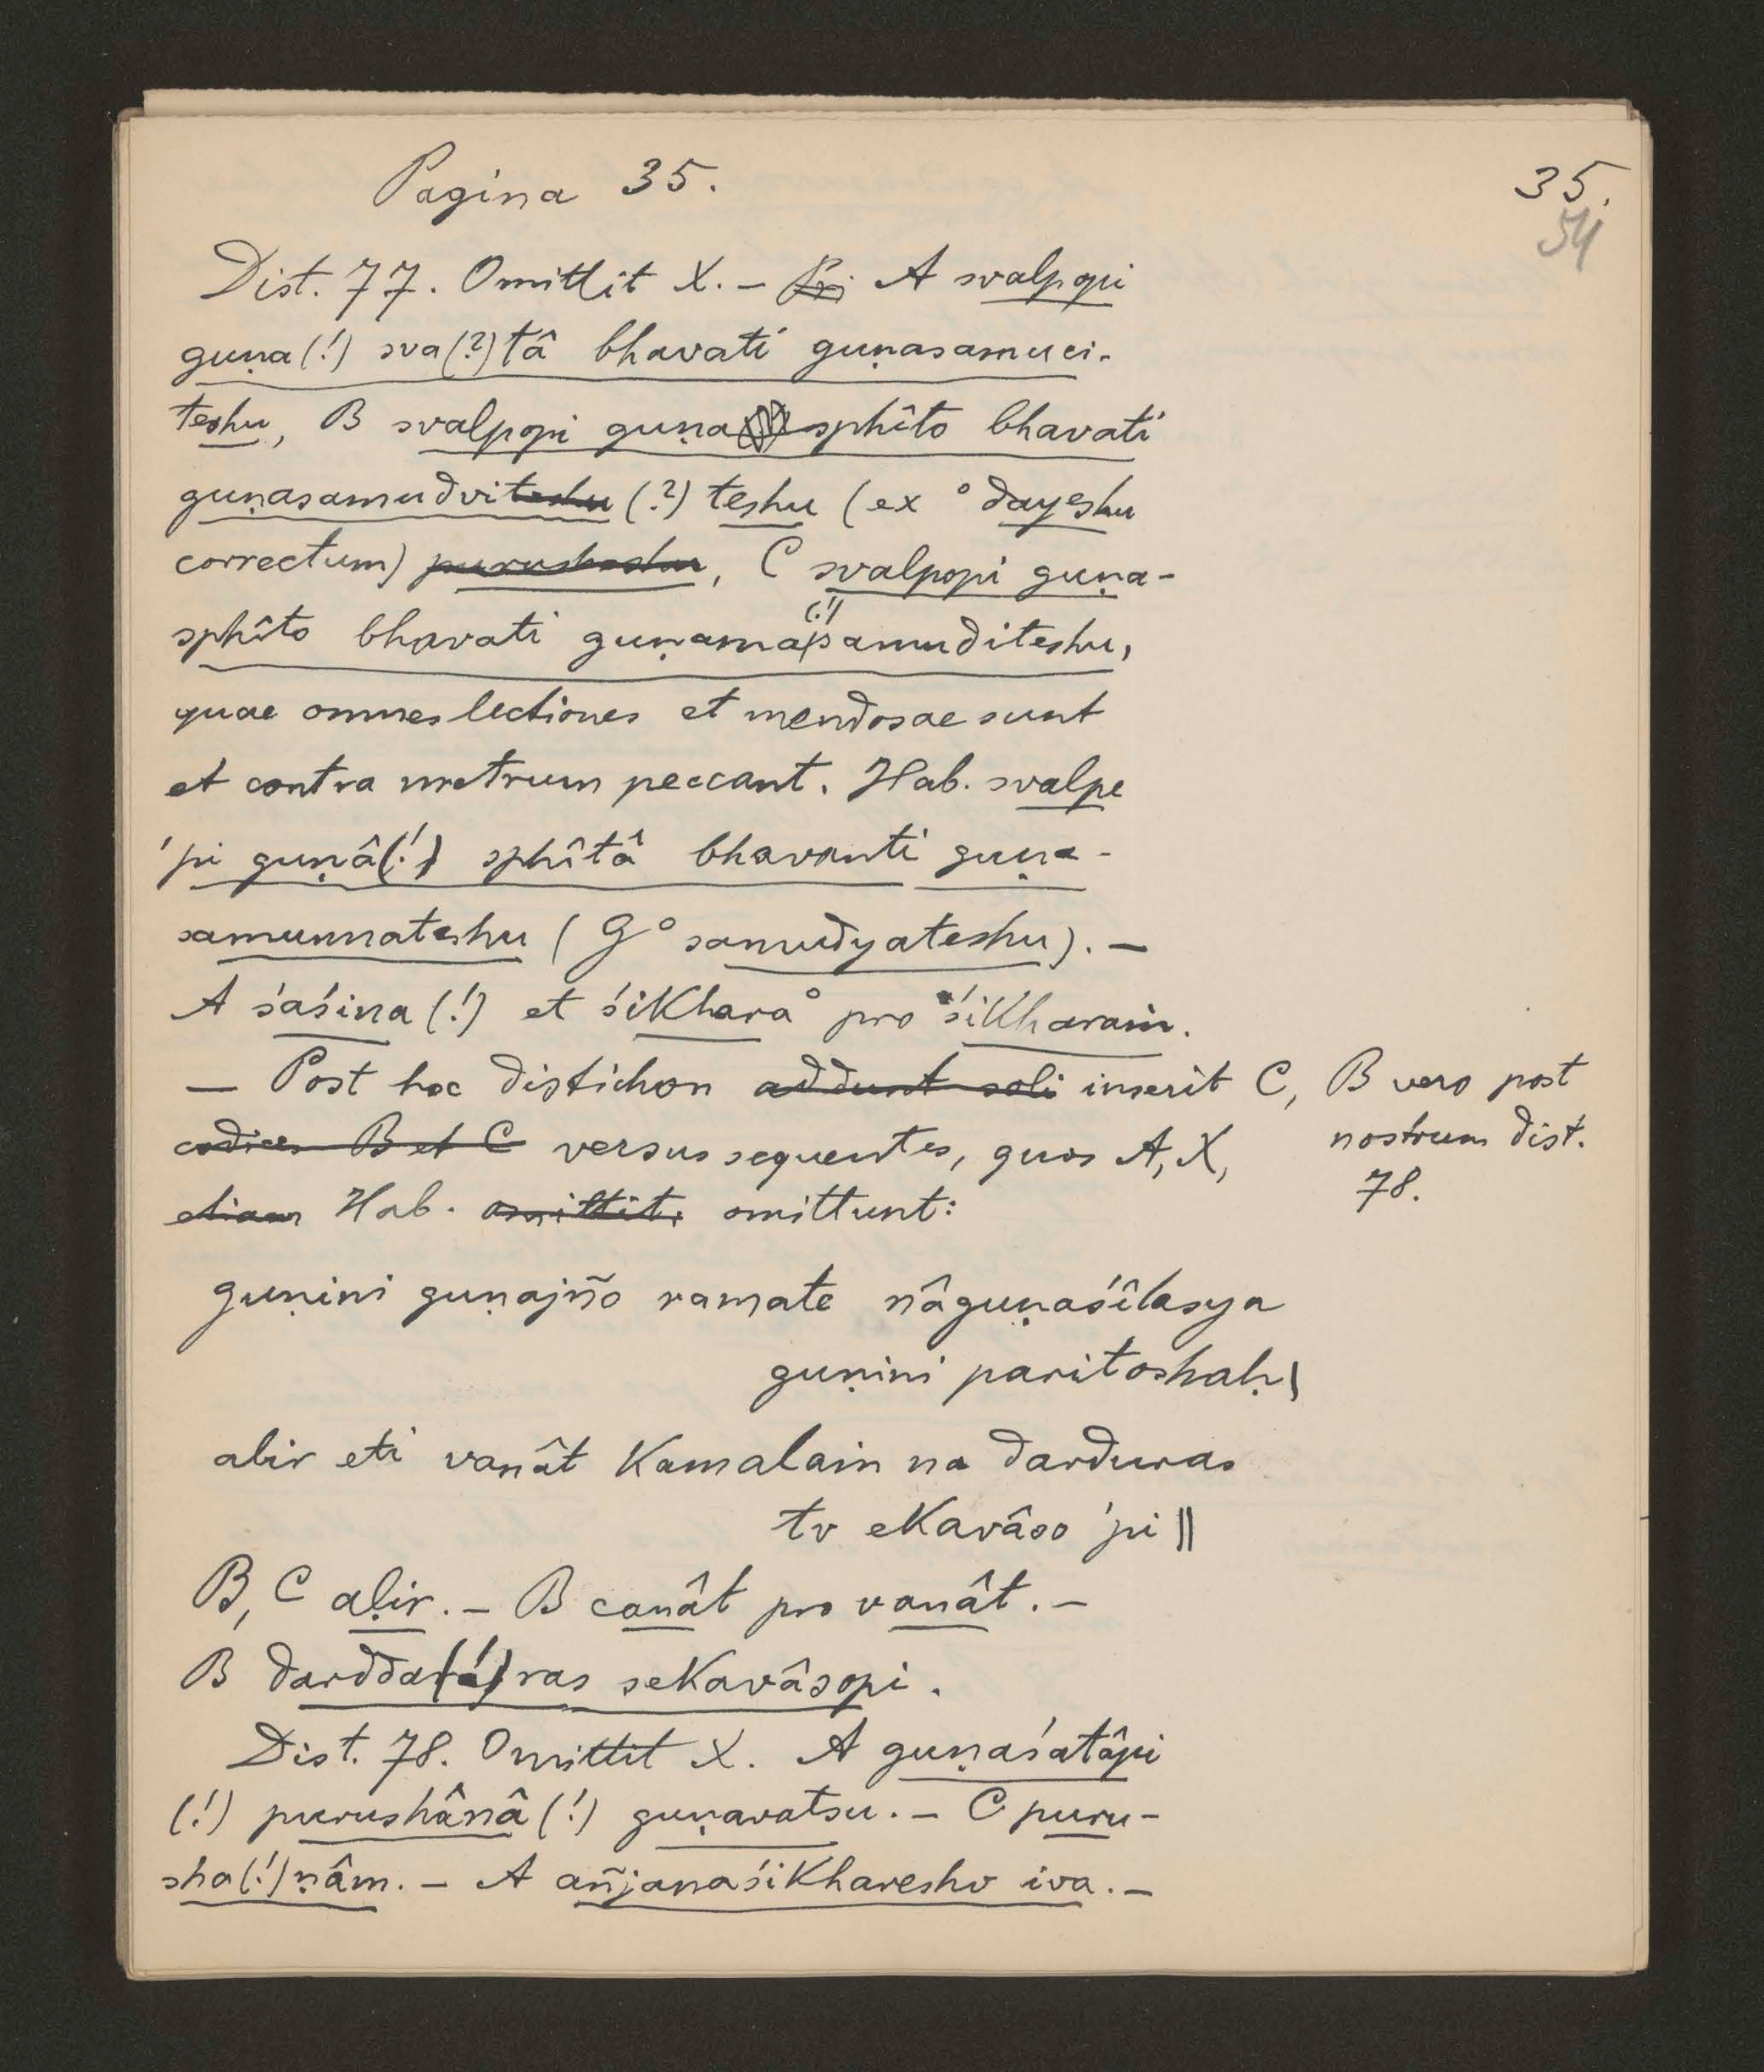 Pagina 35.
35.
54
Dist. 77. Omittit X. – A svalpopi
guṇa(!) sva(?)tâ bhavati guṇasamuci-
teshu, B svalpopi guṇasphîto bhavati
guṇasamudviteshu (?) teshu (ex °dayeshu
correctum) purusheshu, C svalpopi guṇa-
sphîto bhavati guṇama(!)samuditeshu,
quae omnes lectiones et mendosae sunt
et contra metrum peccant. Hab. svalpe
'pi guṇâ(!) sphîtâ bhavanti guṇa-
samunnateshu (G °samudyateshu). –
A śaśina(!) et śikhara° pro °śikharaṁ.
– Post hoc distichon addunt soli inserit C, B vero post
codices B et C versus sequentes, quos A, X, nostrum dist.
etiam Hab. omittit: omittunt: 78.
guṇini guṇajño ramate nâguṇaśîlasya
guṇini paritoshaḥ|
alir eti vanât kamalaṁ na darduras
tv ekavâso 'pi ||
B, C aḷir. – B canât pro vanât. –
B dardda(!)ras sekavâsopi.
Dist. 78. Omittit X. A guṇaśatâpi
(!) purushânâ(!) guṇavatsu. – C puru-
sha(!)ṇâm. – A añjanaśikhareshv iva. –